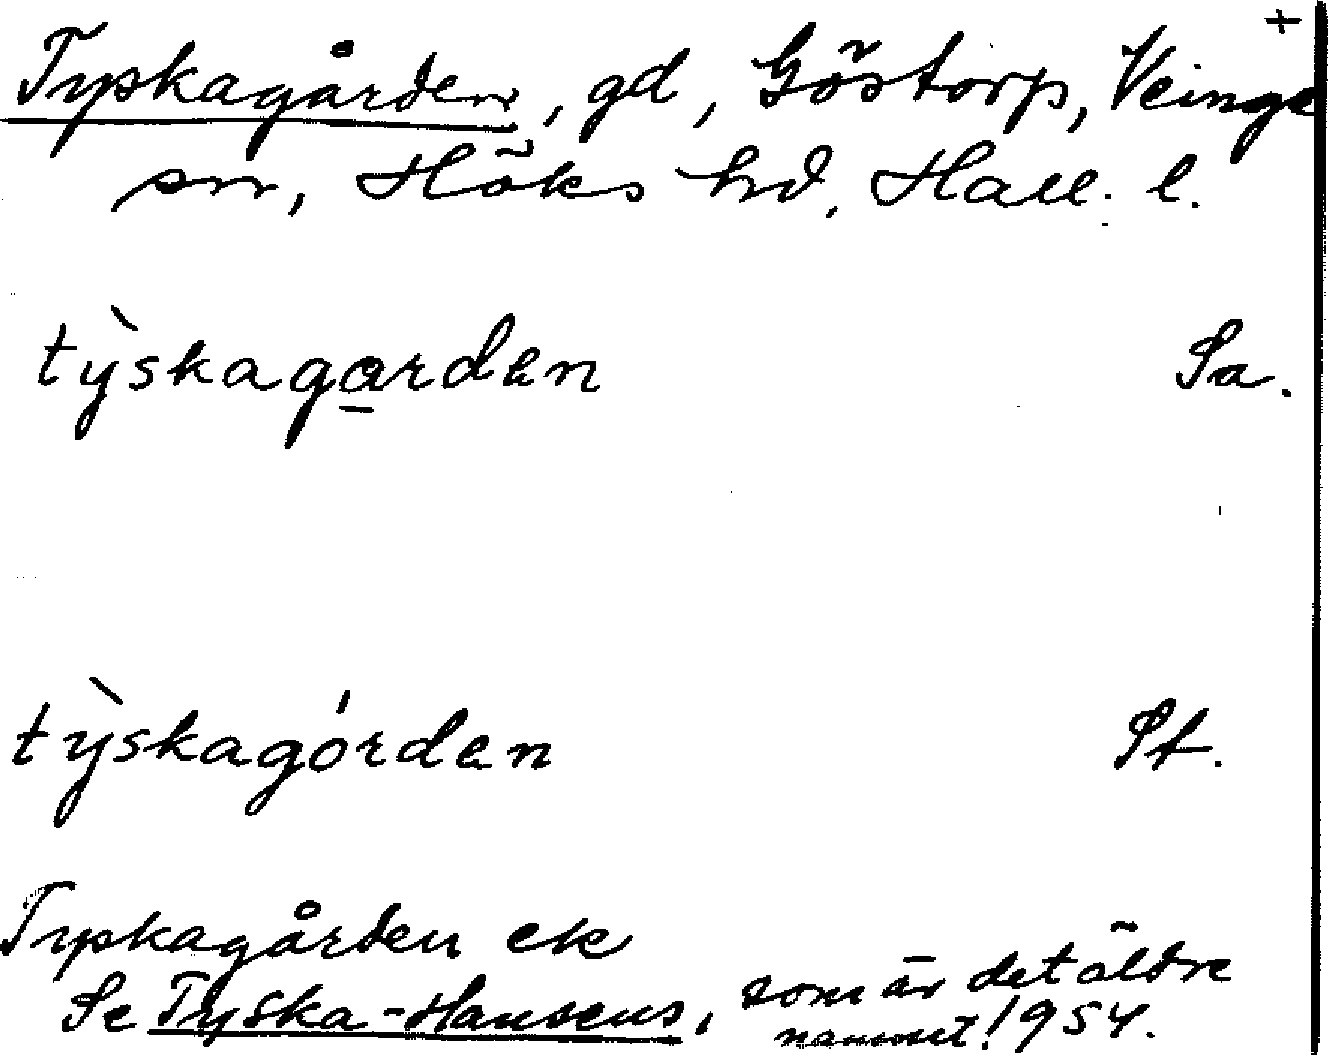 +
Tyskagården, gd, Göstorp, Veinge
sn, Höks hd, Hall. l.
tỳskaga̲rdən Sa.
tỳskagórdən St.
Tyskagården ek
Se Tyska-Hansens, som är det äldre
namnet! 1954.